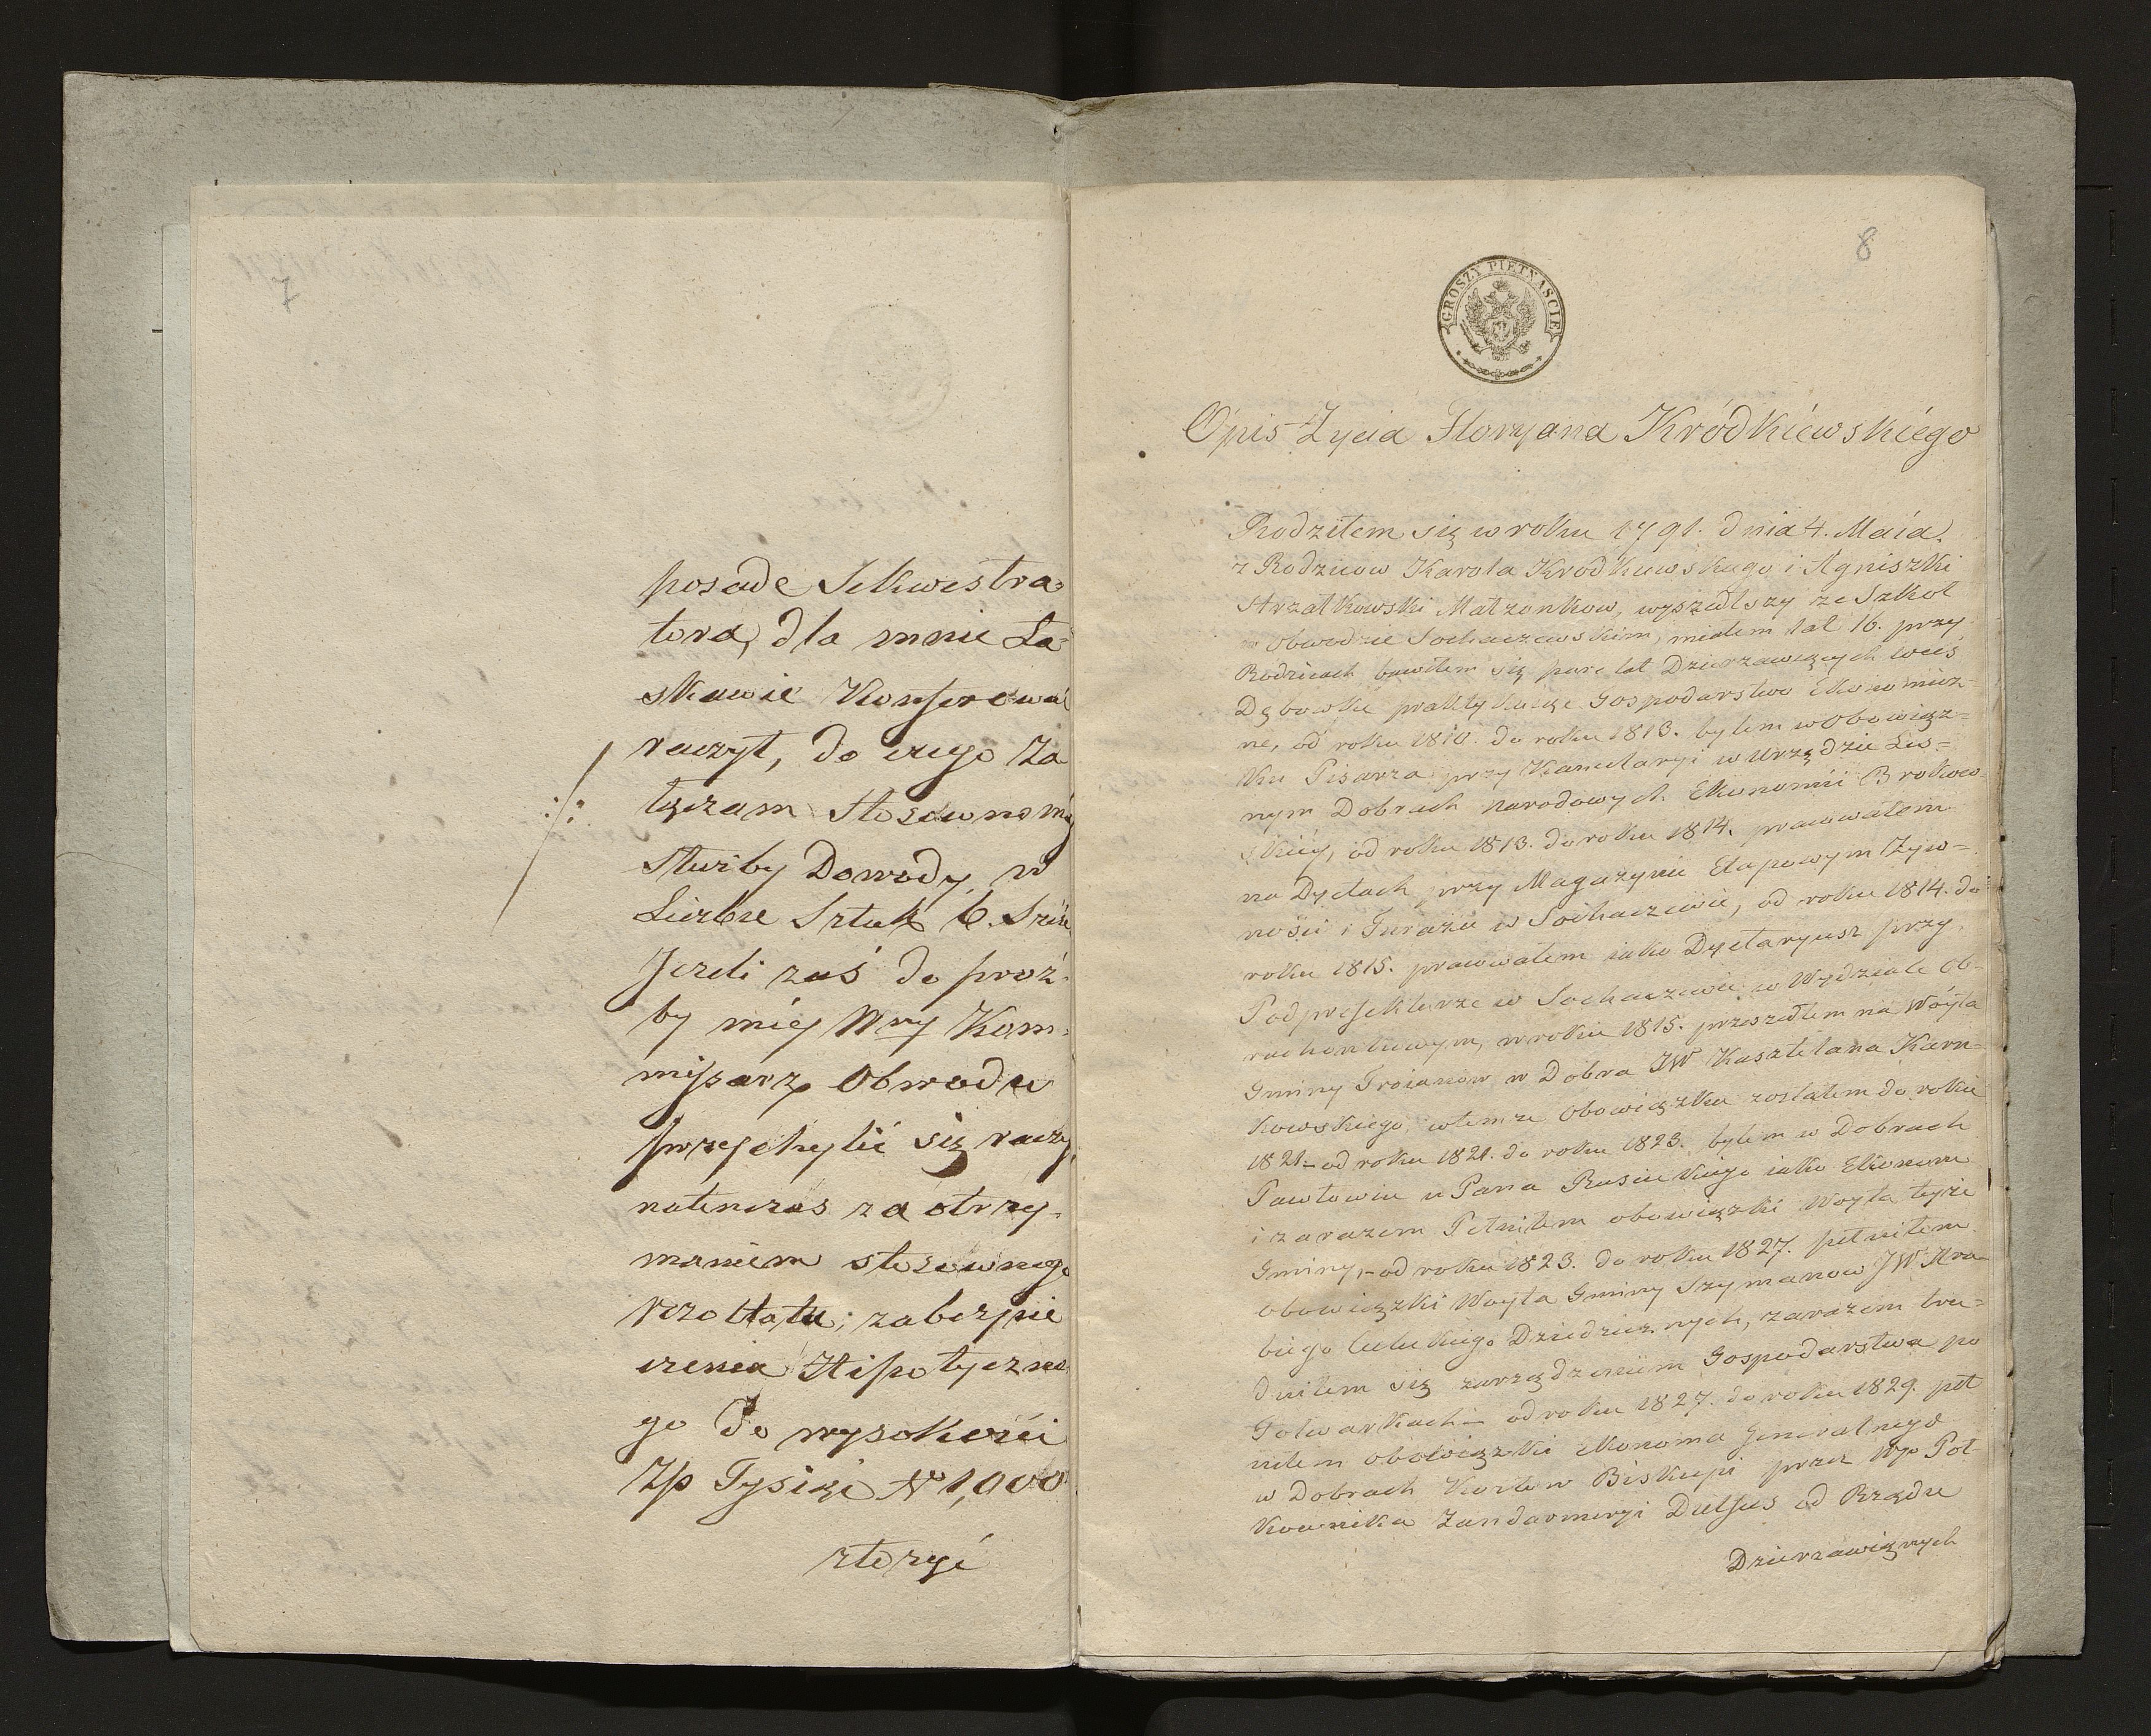 7
posade Sekwestra=
tora, dla mnie La=
skawie Konferować
raczył, do czego Za
łączam Stosowne méy
Służby Dowody, w
Liczbie Sztuk 6. Sześć
Jezeli zaś do proź-
by méy Wny Kom-
missarz Obwodu
przychylić się raczy,
natenczas za otrzy-
maniem stosownego
rezoltatu; zabezpie
czenia Hipotyczne
go Do wysokości
Złp Tysiąc N 1,000
złożyć
8
GROSZY PIĘTNAŚCIE
Opis Życia Floryana Kródkiéwskiégo
Rodziłem się w roku 1791. dnia 4. Maia.
z Rodziców Karola Kródkiewskiego i Agniszki
Strzałkowski Małżonkow, wyszedłszy ze Szkół
w Obwodzie Sochaczewskim, miałem lat 16. przy
Rodzicach bawiłem się parę lat Dzierzawiących wieś
Dębowke praktykuiąc Gospodarstwo Ekonomicz=
ne, od roku 1810. do roku 1813. byłem w Obowiąz=
ku Pisarza przy Kancelaryi w Urzędzie Leś=
nym Dobrach Narodowych Ekonomii
skiéy, od roku 1813. do roku 1814. pracowałem
na Dyetach przy Magazynie Etapowym Żyw=
ności i Furażu w Sochaczewie, od roku 1814. do
roku 1815. pracowałem iako Dyetaryusz przy
Podprefekturze w Sochaczewie w Wydziale Ob-
rachonkowym, w roku 1815. przeszedłem na Wóyta
Gminy Troianow w Dobra JW Kasztelana Karn=
kowskiego, wtemże Obowiązku zostałem do roku
1821 – od roku 1821. do roku 1823. byłem w Dobrach
Pawłowie u Pana Rusieckiego iako Ekonom
i zarazem Pełniłem obowiązki Woyta teyże
Gminy, – od roku 1823. do roku 1827. pełniłem
obowiązki Woyta Gminy Szymanow JW Hra-
biego Dziedzicznych, zarazem tru=
dniłem się zarządzeniem Gospodarstwa po
Folwarkach – od roku 1827. do roku 1829. peł
niłem obowiązki Ekonoma Generalnego
w Dobrach Kozłow Biskupi przez Wgo Poł
kownika Żandarmeryi Dulfus od Rządu
Dzierzawiąnych